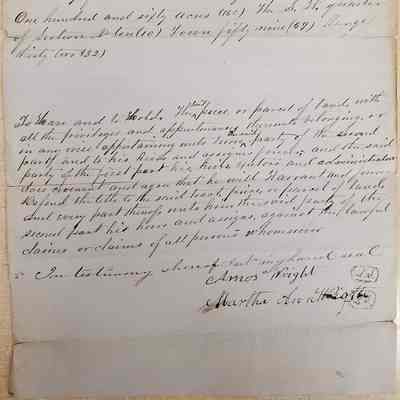 One hundred and sixty acres (160) The S. W. quarter
of Section No ten (10) Town fifty nine (59) Range
thirty two (32)
To Have and to Hold The said piece or parcel of land, with
all the privileges and appurtenances thereunto belonging or
in any wise appertaining unto the said party of the second
part and to his heirs and assigns forever and the said
party of the first part his heirs and administrators
does Covenant and agree that he will Warrant and forever
Defend the title to the said tract, piece, or parcel of land
and every part thereof unto him the said party of the
second part his heirs and assigns, against the lawful
claims or claims of all persons whomsoever
In testimony whereof hand seal
Amos Wright
Martha Ann Wright